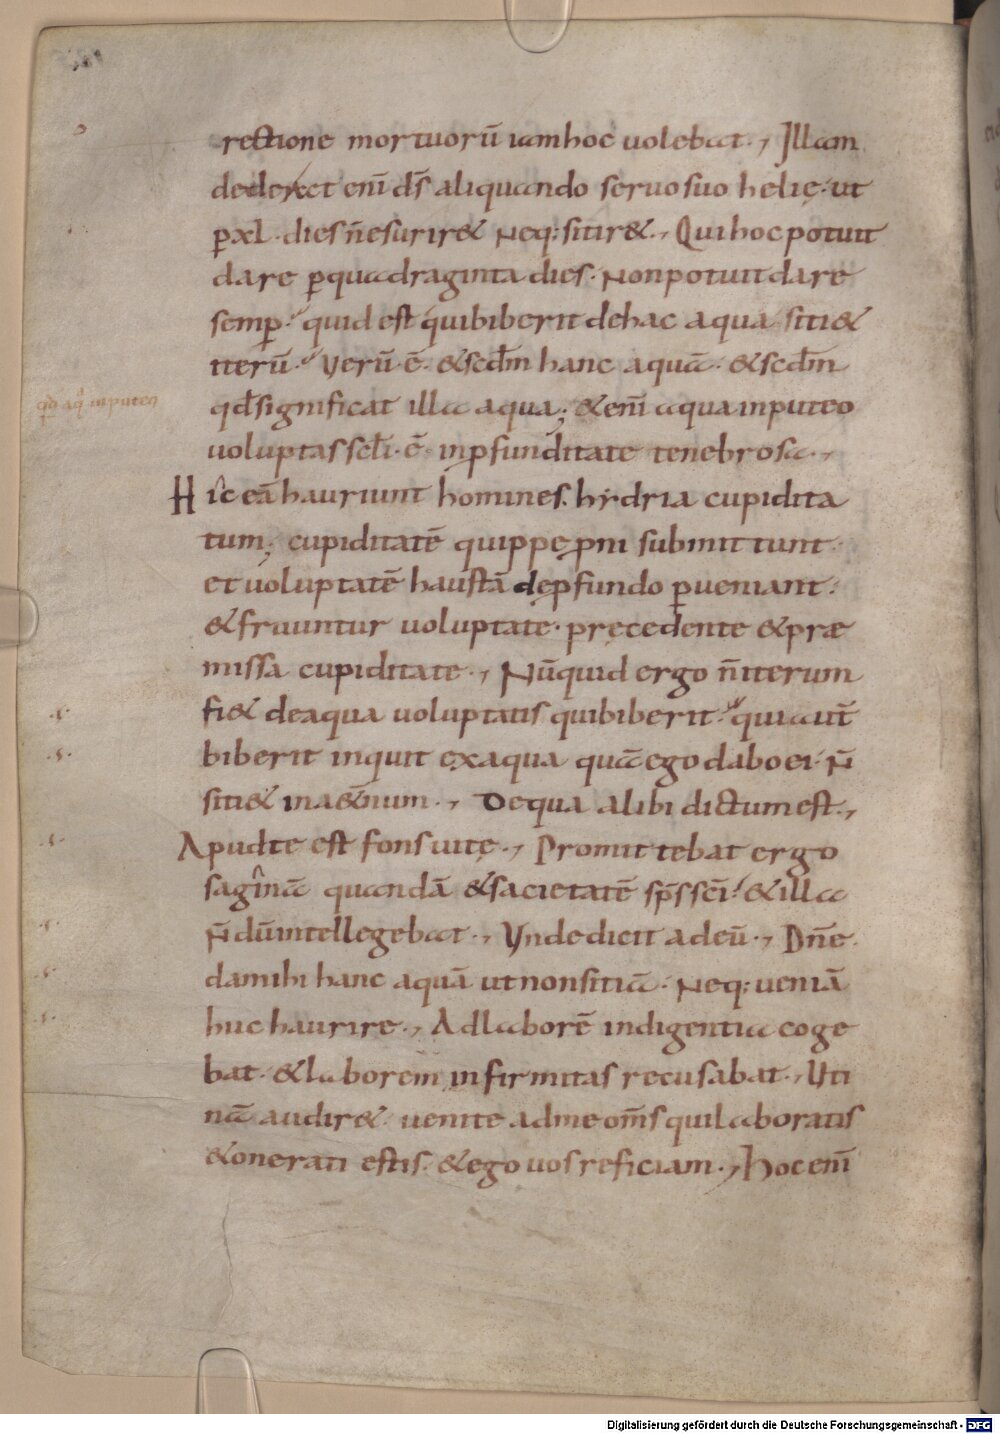 rectione mortuorū iam hoc uolebat., Illam
dederat eni̅ ds̅ aliquando seruo suo helię. ut
ꝑ xl. dies n̅ esurir& Neq; sitir&., Qui hoc potuit
dare ꝑ quadraginta dies. Non potuit dare
semꝑ. quid est qui biberit de hac aqua siti&
iterū. Verū ē. & scdm̅ hanc aquā. & scdm̅
qd̅ significat illa aqua; & eni̅ aqua in puteo
qd̅ aqa in puteo
uoluptas scl̅i. ē. in ꝓfunditate tenebrosa.,
Hic eā hauriunt homines. hydria cupidita
tum; cupiditatē quippe ꝓni submittunt.
et uoluptatē haustā de ꝓfundo ꝑueniant.
& fruuntur uoluptate. pręcedente & præ
missa cupiditate., Nūquid ergo n̅ iterum
fi& de aqua uoluptatis qui biberit. qui aut̅
biberit inquit ex aqua quā ego dabo ei. N̅
siti& in aet̅num., De qua alibi dictum est.,
Apud te est fons uitę., Promittebat ergo
saginā quandā & sacietatē sp̅s sc̅i. & illa
N̅ dū intellegebat., Vnde dicit ad eū., Dn̅e
da mihi hanc aquā ut non sitiā. Neq; ueniā
huc haurire., Ad laborē indigentia coge
bat. & laborem infirmitas recusabat., Uti
nā audir& uenite ad me om̅s qui laboratis
& onerati estis. & ego uos reficiam., Hoc eni̅
Digitalisierung gefördert durch die Deutsche Forschungsgemeinschaft - DFG